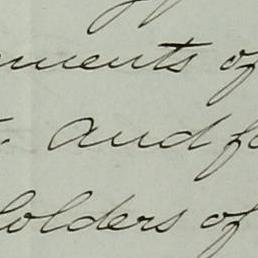 ments of
and fo
holders of